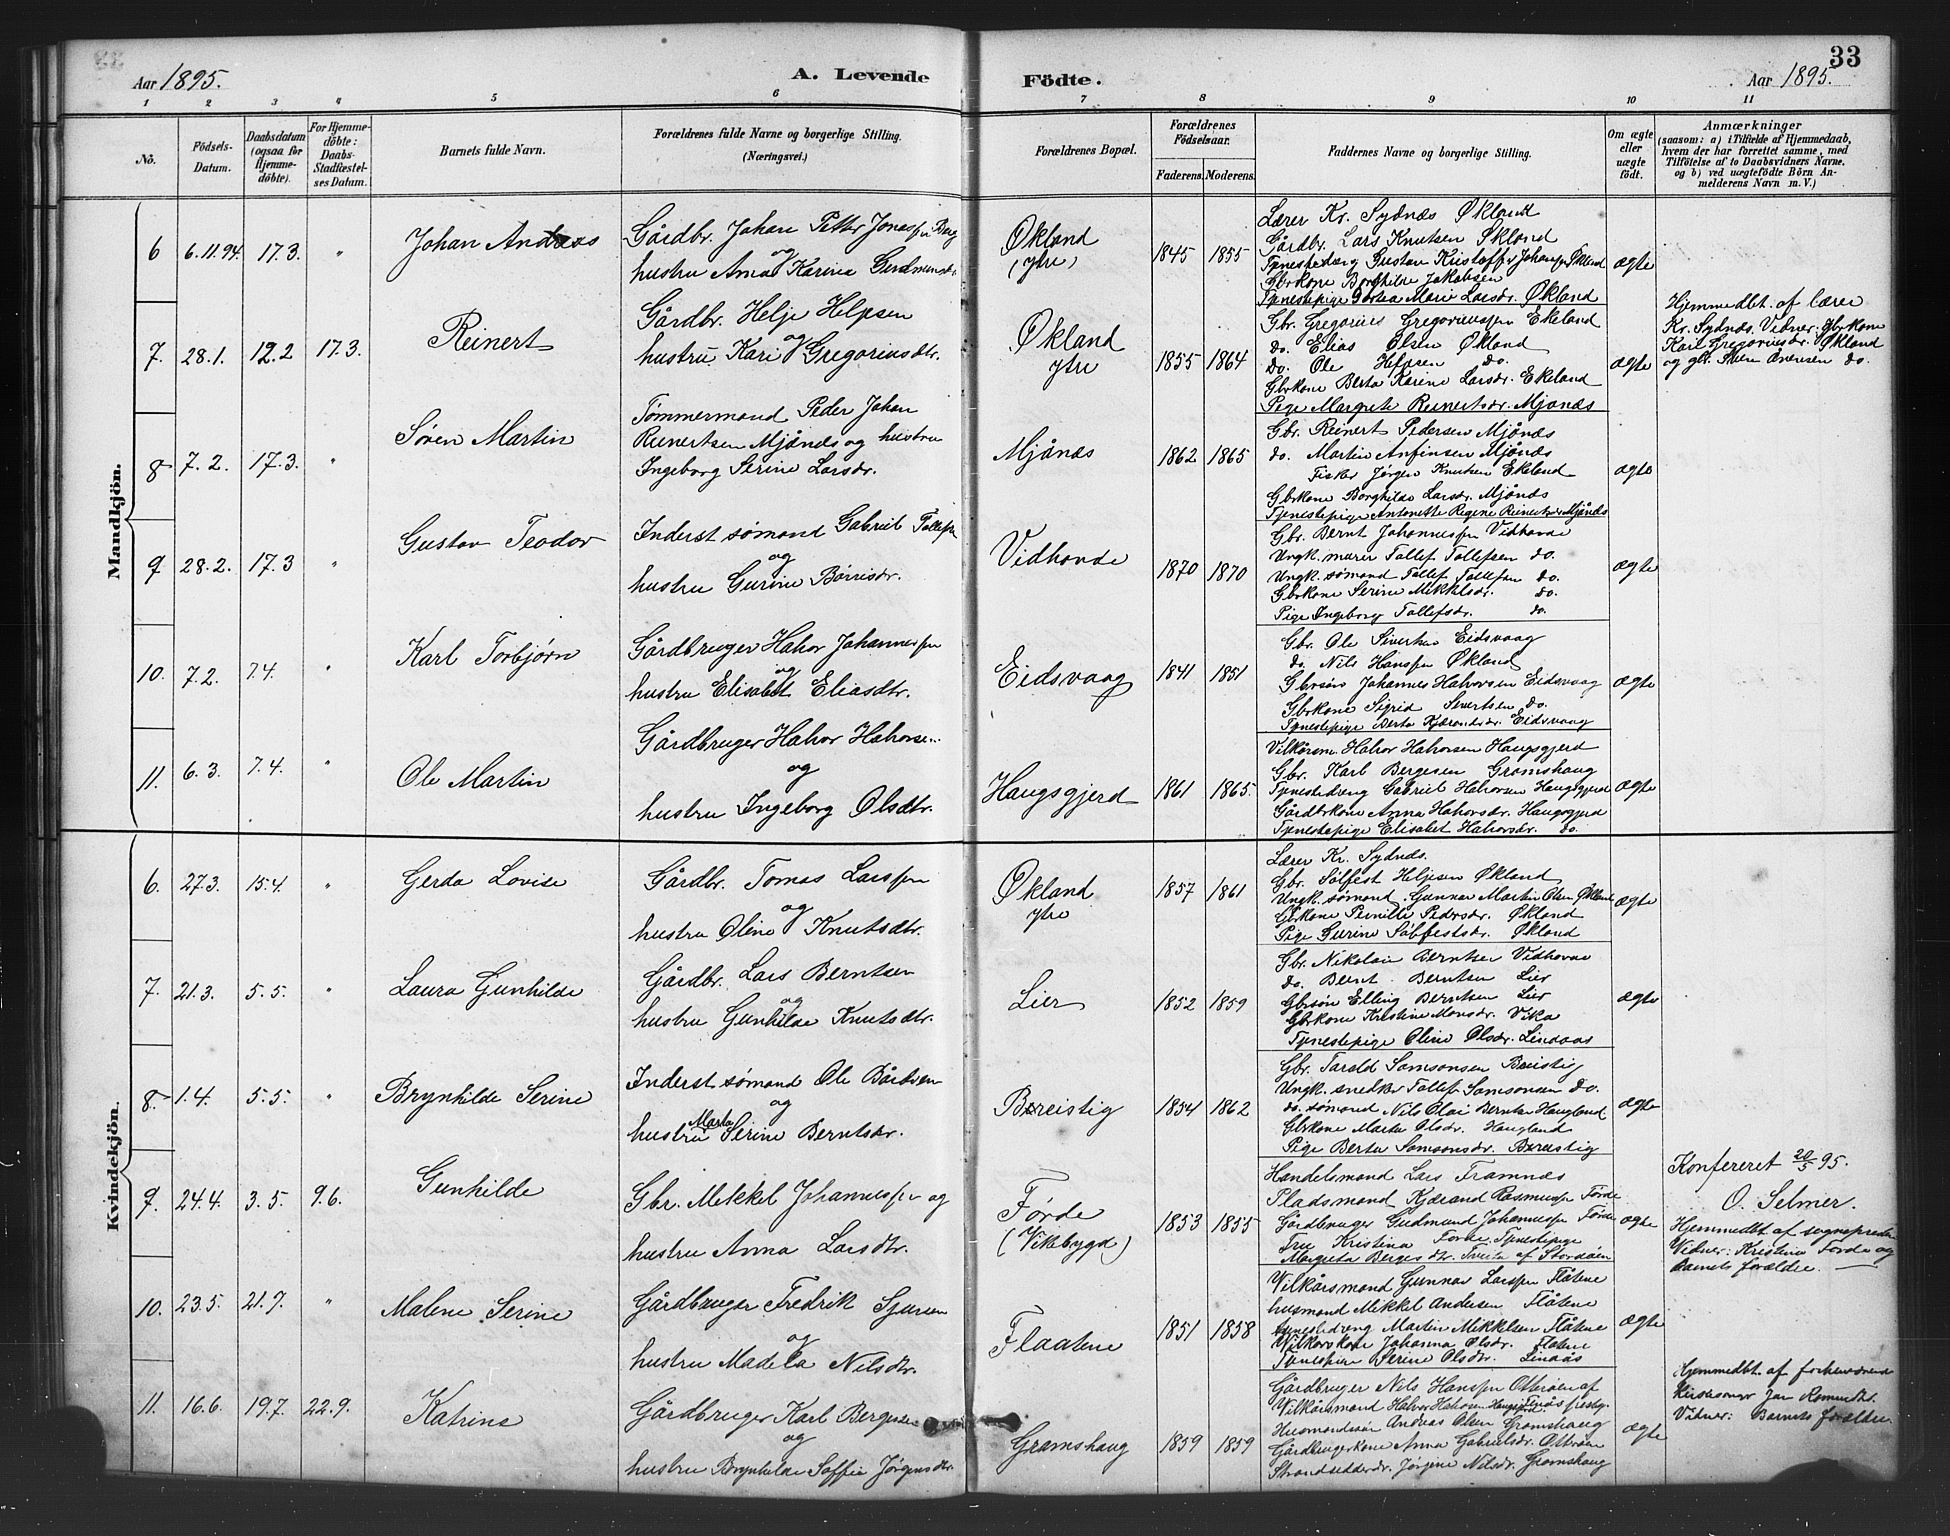 33
Aar 1895.
A. Levende Födte.
Aar 1895.
1 2 3 4 5 6 7 8 9 10 11
No.
Födsels-Datum.
Daabsdatum (ogsaa for Hjemme-döbte).
For Hjemme-döbte: Daabs-Stadfæstel-ses Datum.
Barnets fulde Navn.
Forældrenes fulde Navne og borgerlige Stilling. (Næringsvei.)
Forældrenes Bopæl.
Forældrenes Födselsaar.
Faderens. Moderens.
Faddernes Navne og borgerlige Stilling.
Om ægte eller uægte födt.
Anmærkninger
(saasom: a) i Tilfælde af Hjemmedaab, hvem der har forrettet samme, med Tilföielse af to Daabsvidners Navne, og b) ved uægtefödte Börn Anmelderens Navn m. V.)
Mandkjön.
6 6.11.94. 17.3. " Johan Andreas
Gårdbr. Johan Petter Jonassen Berg
og
hustru Anna Karina Gudmundsdr.
Økland (ytre) 1845 1855
Lærer Kr. Sydnæs Økland
Gårdbr. Lars Knutsen Økland
Tjenestedreng Gustav Kristoffer Johansen Økland
Gbrkone Borghilde Jakobsen
Tjenestepige Dortea Marie Larsdr. Økland
ægte
7. 28.1. 12.2 17.3. Reinert
Gårdbr. Helje Heljesen
og
hustru Kari Gregoriusdtr.
Økland ytre 1855 1864
Gbr. Gregorius Gregoriussen Ekeland
do. Elias Olsen Økland
do. Ole Heljesen do.
Gbrkone Berta Karine Larsdr. Ekeland
Pige Margrete Reinertsdr. Mjånæs
ægte
Hjemmedbt. af lærer
Kr. Sydnæs. Vidner: Gbrkone
Kari Gregoriusdr. Økland
og gbr. Sven Svensen do.
8 7.2. 17.3. " Søren Martin
Tømmermand Peder Johan
Reinertsen Mjånæs og hustru
Ingeborg Serine Larsdr.
Mjånæs 1862 1865
Gbr. Reinert Pedersen Mjånæs
do. Martin Anfinsen Mjånæs
Fisker Jørgen Knutsen Ekeland
Gbrkone Borghilde Larsdr. Mjånæs
Tjenestepige Antonette Regine Reinertsdr. Mjånæs
ægte
9 28.2. 17.3 " Gustav Teodor
Inderst sømand Gabriel Tollefsen
og
hustru Gurine Børrisdr.
Vidhovde 1870 1870
Gbr. Bernt Johannessen Vidhovde
Ungk. murer Tollef Tollefsen do.
Ungk. sømand Tollef Tollefsen do.
Gbrkone Serine Mikkelsdr. do.
Pige Ingeborg Tollefsdr. do.
ægte
10. 7.2. 7.4. " Karl Torbjørn
Gårdbruger Halvor Johannessen
og
hustru Elisabet Eliasdtr.
Eidsvaag 1841 1851
Gbr. Ole Sivertsen Eidsvaag
do. Nils Hanssen Økland
Gbrsøn Johannes Halvorsen Eidsvaag
Gbrkone Sigrid Sivertsen do.
Tjenestepige Berta Kjærandsdr. Eidsvaag
ægte
11. 6.3. 7.4. " Ole Martin
Gårdbruger Halvor Halvorsen
og
hustru Ingeborg Olsdtr.
Haugsgjerd 1861 1865.
Vilkårsm. Halvor Halvorsen Haugsgjerd
Gbr. Karl Bergesen Gromshaug
Tjenestedreng Gabriel Halvorsen Haugsgjerd
Gårdbrkone Anna Halvorsdr. Haugsgjerd
Tjenestepige Elisabet Halvorsdr. do.
ægte
Kvindekjön.
6. 27.3. 15.4. " Gerda Lovise
Gårdbr. Tomas Larssen
og
hustru Oline Knutsdtr.
Økland ytre 1857 1861
Lærer Kr. Sydnæs.
Gbr. Sølfest Heljesen Økland
Ungk. sømand. Gunnar Martin Olsen Økland
Gbrkone Pernille Pedersdr. Økland
Pige Gurine Sølfestsdr. Økland
ægte
7. 21.3. 5.5. " Laura Gunhilde
Gårdbr. Lars Berntsen
og
hustru Gunhilde Knutsdtr.
Lier 1852 1859
Gbr. Nikolai Berntsen Vidhovde
do. Bernt Berntsen Lier
Gbrsøn Elling Berntsen Lier
Gbrkone Kristine Monsdr. Vika
Tjenestepige Oline Olsdr. Lindaas
ægte
8. 1.4. 5.5. " Brynhilde Serine
Inderst sømand Ole Bårdsen
og
hustru Marta Serine Berntsdr.
Breistig 1854 1862
Gbr. Tarald Samsonsen Breistig
Ungk. snedker Tollef Samsonsen do.
do. sømand Nils Olai Berntsen Haugland
Gbrkone Marta Olsdr. Haugland
Pige Berta Samsonsdr. Breistig
ægte
9. 24.4. 3.5. 9.6. Gunhilde
Gbr. Mikkel Johannessen og
hustru Anna Larsdtr.
Førde (Vikebygd) 1853 1855
Handelsmand Lars Framnæs
Pladsmand Kjærand Rasmussen Førde
Gårdbruger Gudmund Johannessen Førde
Fru Kristina Førde. Tjenestepige
Margreta Bergesdtr. Tveita af Stordøen
ægte
Konfereret 20/5 95.
O. Selmer.
Hjemmedbt af sognepresten
Vidner: Kristina Førde og
Barnets forældre.
10. 23.5. 21.7. " Malene Serine
Gårdbruger Fredrik Sjursen
og
hustru Madela Nilsdtr.
Flaatene 1851 1858
Vilkårsmand Gunnar Larssen Flåtene
husmand Mikkel Andersen Flåtene
tjenestedreng Martin Mikkelsen Flåtene
Vilkårskone Johanna Olsdr. Flåtene
Tjenestepige Serine Olsdtr. Lindås
ægte
11. 16.6. 19.7. 22.9. Katrine
Gårdbruger Karl Bergesen
og
hustru Brynhilde Soffie Jørgensdtr.
Gramshaug 1859 1859
Gårdbruger Nils Hanssen Otterøen af
Vilkårsmand Halvor Halvorsen Haugsgjerd
Husmandssøn Andreas Olsen Gromshaug
Gårdbrugerkone Anna Gabrielsdr. Otterøen
Strandsidderdr. Jørgine Nilsdr. Gromshaug
ægte
Hjemmedbt. af forhenværende
kirkesanger Jan Romundt.
Vidner: Barnets forældre.